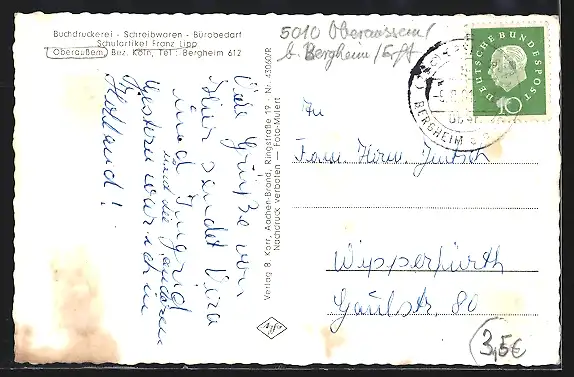 Buchdruckerei - Schreibwaren - Bürobedarf
Schulartikel Franz Lipp
Oberaußem, Bez. Köln, Tel.: Bergheim 612
5010 Oberaussem/
b. Bergheim/Erft
DEUTSCHE BUNDESPOST
10
BERGHEIM
Viele Grüße von
hier sendet Vera
und Ingrid
und die anderen
Gestern war ich in
Holland!
Verlag B. Korr, Aachen-Brand, Ringstraße 19 - Nr. 43060/R
Nachdruck verboten - Foto-Mulert
Agfa
An
Fam. Herm.
Wipperfürth
Gaulstr. 80
3,5€